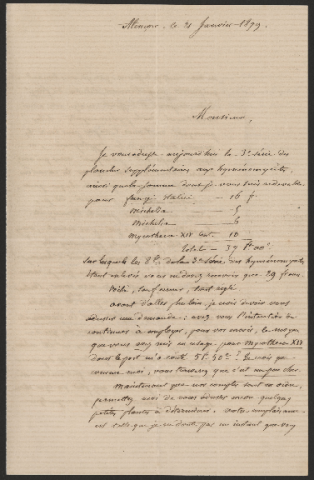 Alençon, le 21 Janvier 1899.
Monsieur,
Je vous adresse aujourd'hui la 3e série des
planches supplémentaires aux hyménomycètes,
ainsi que la somme dont je vous suis redevable
pour fungi Italici — 16 f.
Michelia — 5
Michelia — 6
Mycotheca XIV cent. 10
Total — 37 fr. 00
sur laquelle les 8 f. de la 3e série des hyménomycètes
étant enlevés vous n'devez recevoir que 29 francs.
Voilà, Monsieur, tout réglé
avant d'aller plus loin, je crois devoir vous
adresser une demande; avez vous l'intention de
continuer à employer, pour vos envois, le moyen
que vous avez mis en usage pour Mycotheca XIV
dont le port m'a coûté 5f. 50c.? Je crois que
comme moi, vous trouvez que c'est un peu cher.
maintenant que nos comptes sont en règle,
permettez moi de vous adresser encore quelques
petites plantes à déterminer. votre complaisance
est telle que je ne doute pas un instant que vous